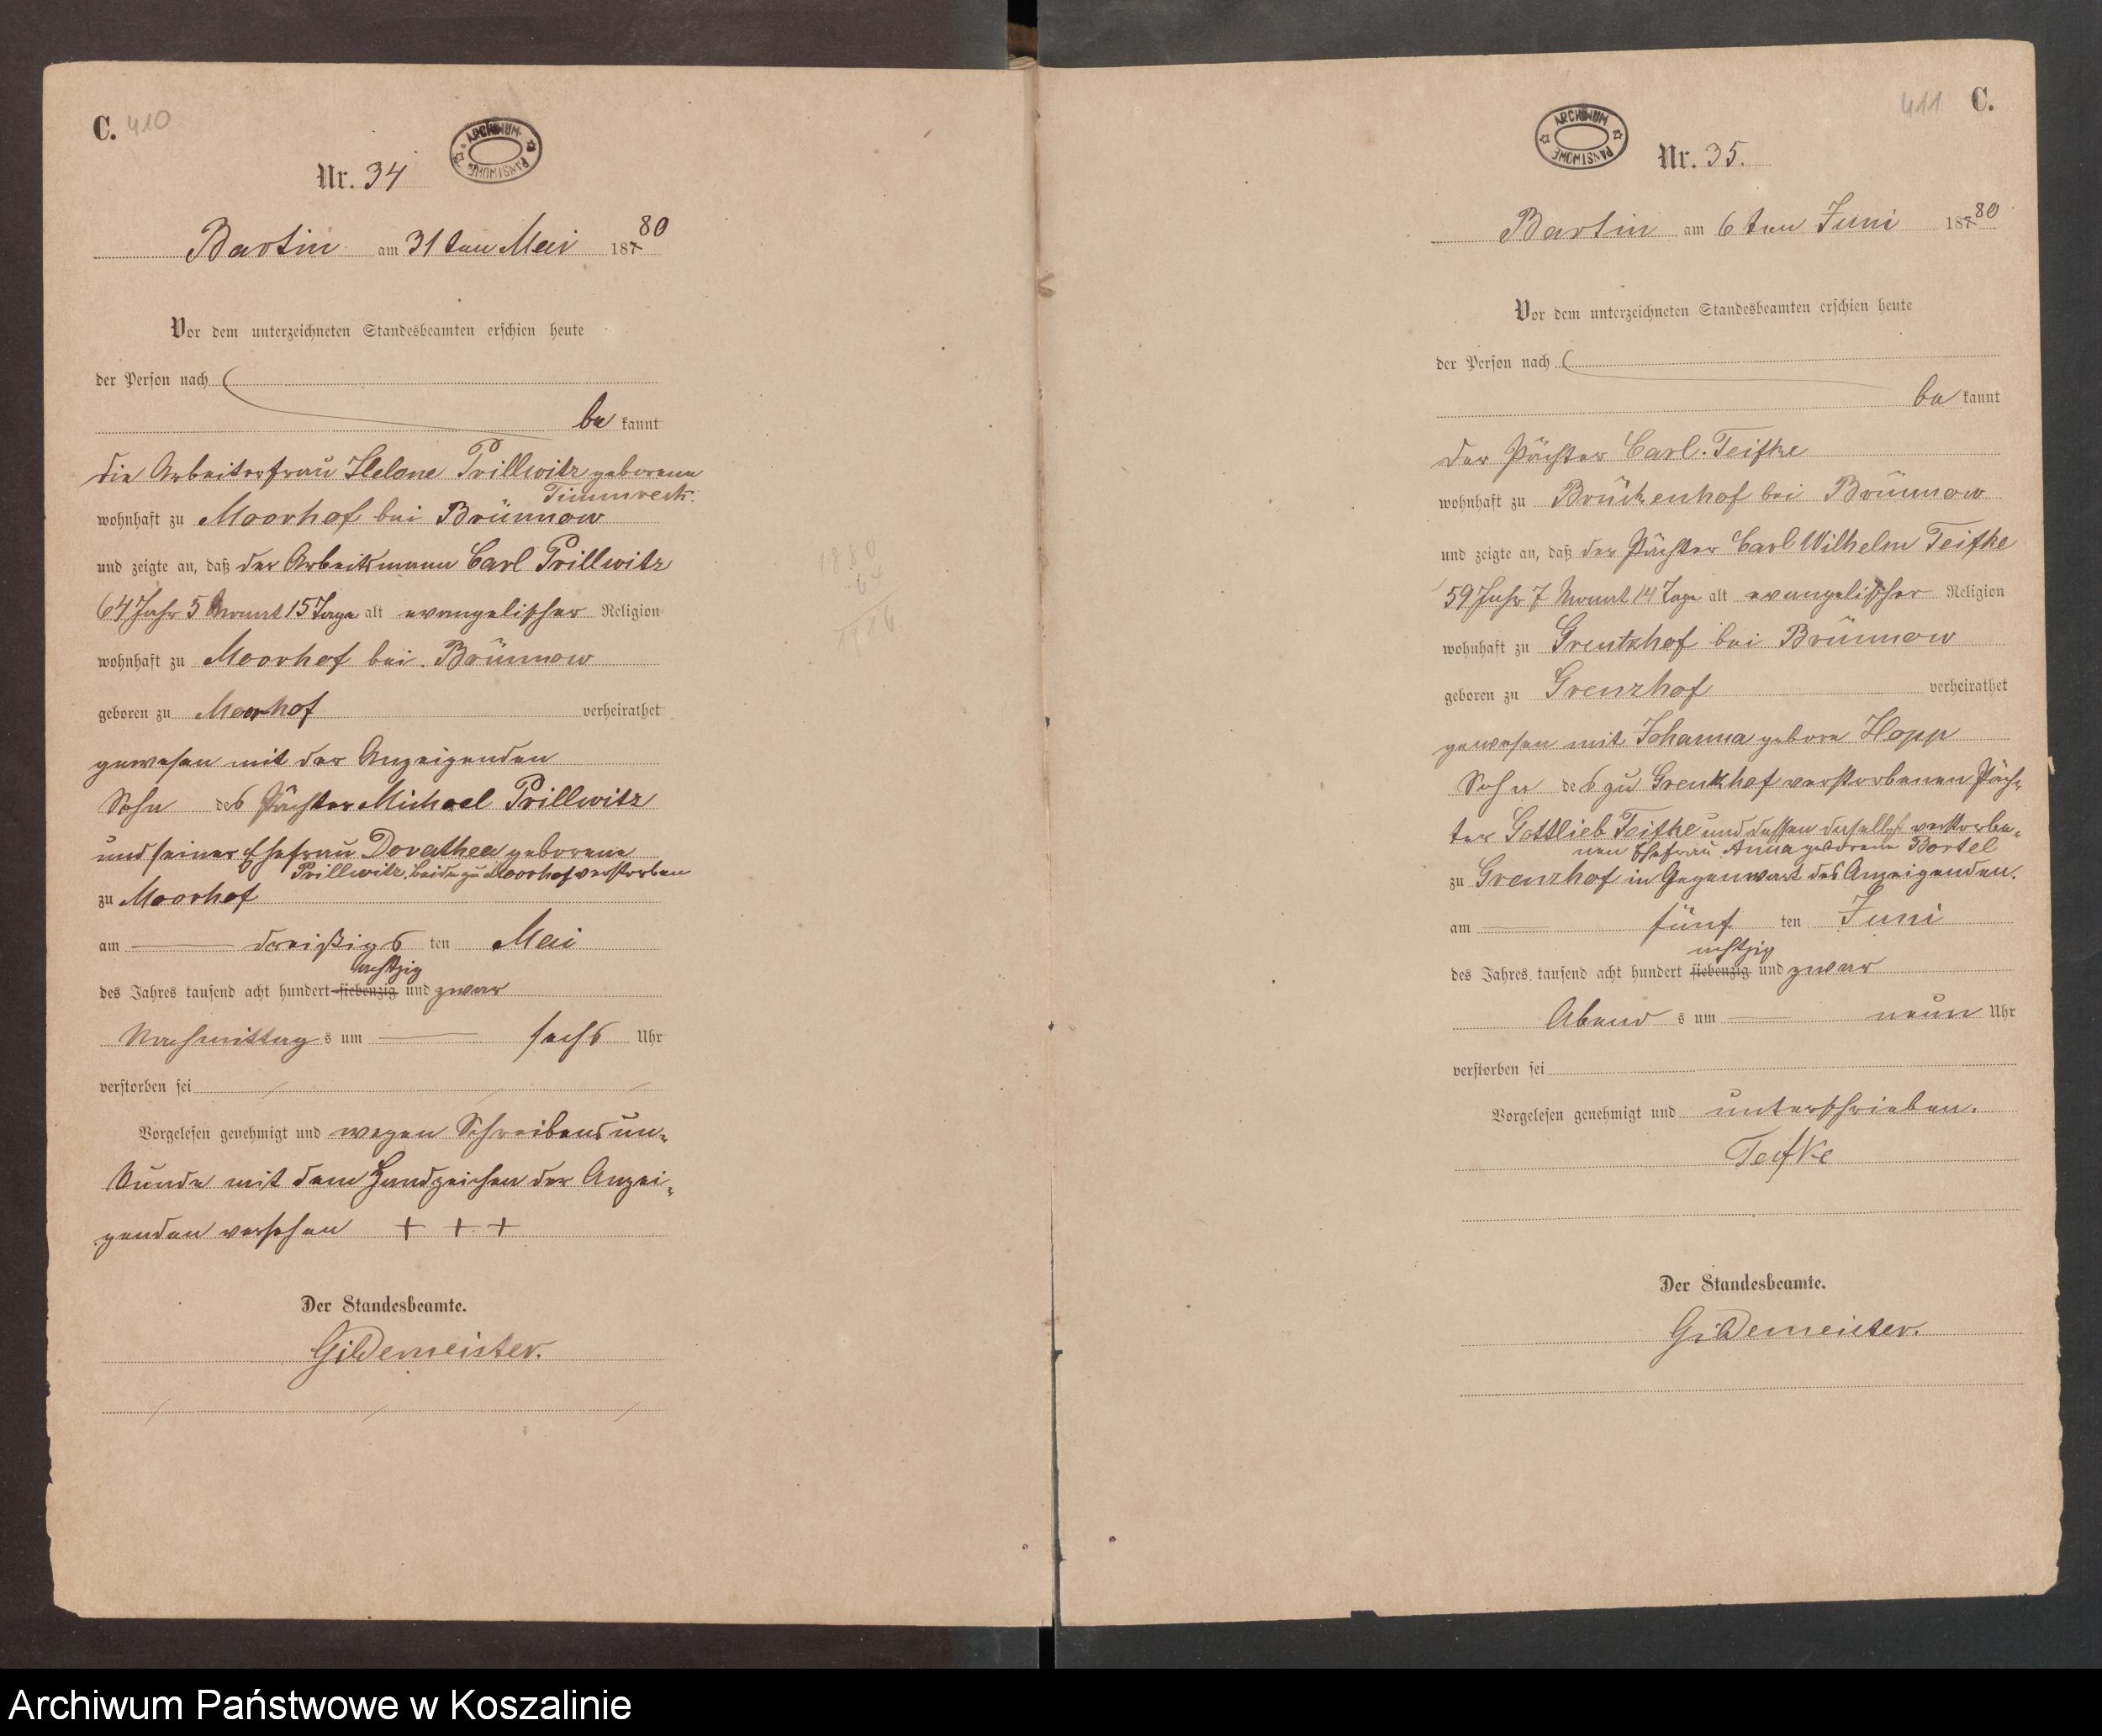 C. 410
ARCHIWUM PAŃSTWOWE
Nr. 34
Bartin am 31 ten Mai 187 80
Vor dem unterzeichneten Standesbeamten erschien heute
der Person nach
be kannt
die Arbeiterfrau Helene Prillwitz geborene
Timmreck
wohnhaft zu Moorhof bei Brünnow
und zeigte an, daß der Arbeitsmann Carl Prillwitz
64 Jahr 5 Monat 15 Tage alt evangelischer Religion
wohnhaft zu Moorhof bei Brünnow
geboren zu Moorhof verheirathet
gewesen mit der Anzeigenden
Sohn des Pächter Michael Prillwitz
und seiner Ehefrau Dorathea geborene
Prillwitz, beide zu Moorhof verstorben
zu Moorhof
am dreißigs ten Mai
achtzig
des Jahres tausend acht hundert siebenzig und zwar
Nachmittag s um sechs Uhr
verstorben sei
Vorgelesen genehmigt und wegen Schreibensun-
kunde mit dem Handzeichen der Anzei-
genden versehen + + +
Der Standesbeamte.
Gildemeister.
1880
64
1816
411 C.
ARCHIWUM PAŃSTWOWE
Nr. 35.
Bartin am 6 ten Juni 187 80
Vor dem unterzeichneten Standesbeamten erschien heute
der Person nach
be kannt
der Pächter Carl Teifke
wohnhaft zu Brückenhof bei Brünnow
und zeigte an, daß der Pächter Carl Wilhelm Teifke
59 Jahr 7 Monat 14 Tage alt evangelischer Religion
wohnhaft zu Grentzhof bei Brünnow
geboren zu Grenzhof verheirathet
gewesen mit Johanna gebore Hopp
Sohn des zu Grentzhof verstorbenen Päch-
ter Gottlieb Teifke und dessen daselbst verstorbe-
nen Ehefrau Anna geborene Bortel
zu Grenzhof in Gegenwart des Anzeigenden.
am fünf ten Juni
achtzig
des Jahres tausend acht hundert siebenzig und zwar
Abend s um neun Uhr
verstorben sei
Vorgelesen genehmigt und unterschrieben.
Teifke
Der Standesbeamte.
Gildemeister.
Archiwum Państwowe w Koszalinie